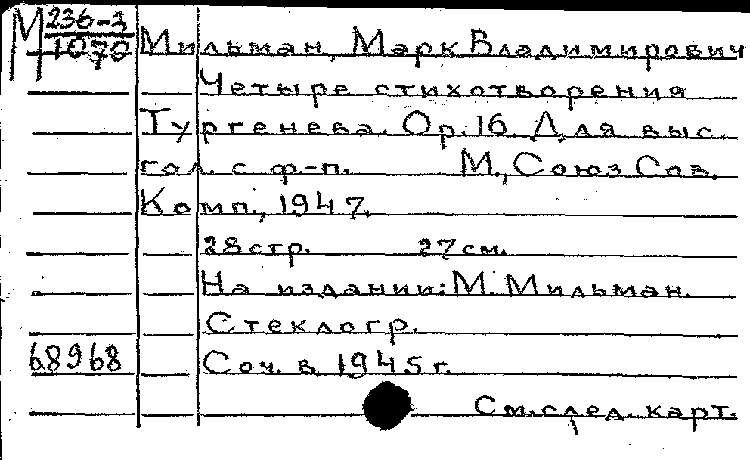 М 236-3
1070 Мильман, Марк Владимирович
Четыре стихотворения
Тургенева. Ор.16. Для выс.
гол. с ф-п. М., Союз Сов.
Комп., 1947.
28 стр. 27 см.
На издании: М. Мильман.
Стеклогр.
68968 Соч. в 1945 г.
См. след. карт.